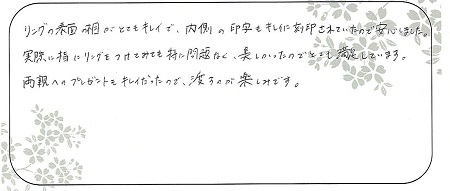 リングの表面の相がとてもキレイで、内側の印字もキレイに刻印されていたので安心しました。
実際に指にリングをつけてみても特に問題なく、美しかったのでとても満足しています。
両親へのプレゼントもキレイだったので、渡すのが楽しみです。